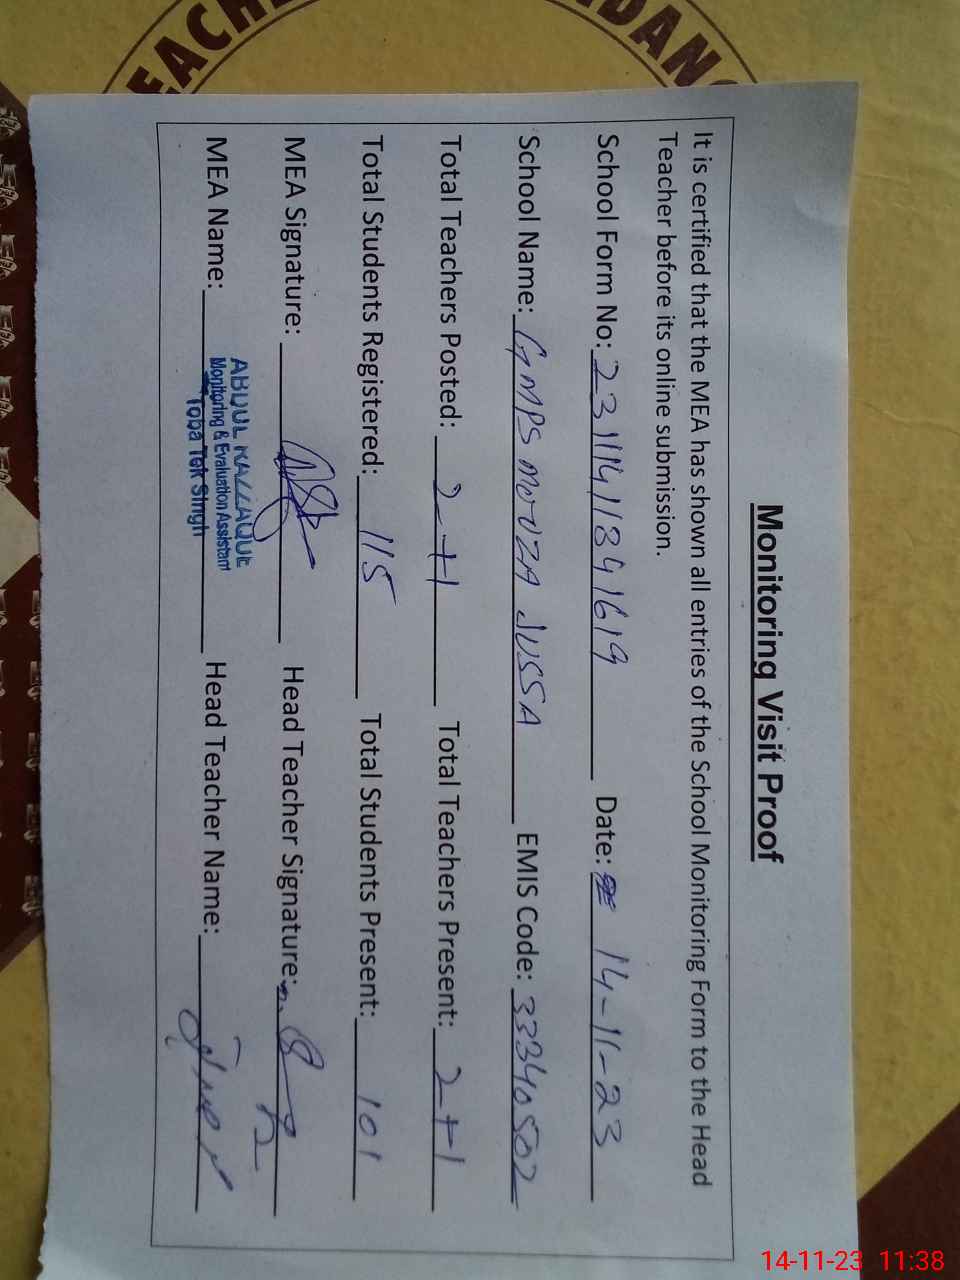 TEACHE
NDANC
Monitoring Visit Proof
It is certified that the MEA has shown all entries of the School Monitoring Form to the Head
Teacher before its online submission.
School Form No: 231114118391619 Date: 14-11-23
School Name: GMPS MOUZA JUSSA EMIS Code: 33340502
Total Teachers Posted: 2+1 Total Teachers Present: 2+1
Total Students Registered: 115 Total Students Present: 101
MEA Signature: Head Teacher Signature:
MEA Name: ABDUL RAZZAQUE Head Teacher Name:
Monitoring & Evaluation Assistant
Toba Tek Singh
14-11-23 11:38